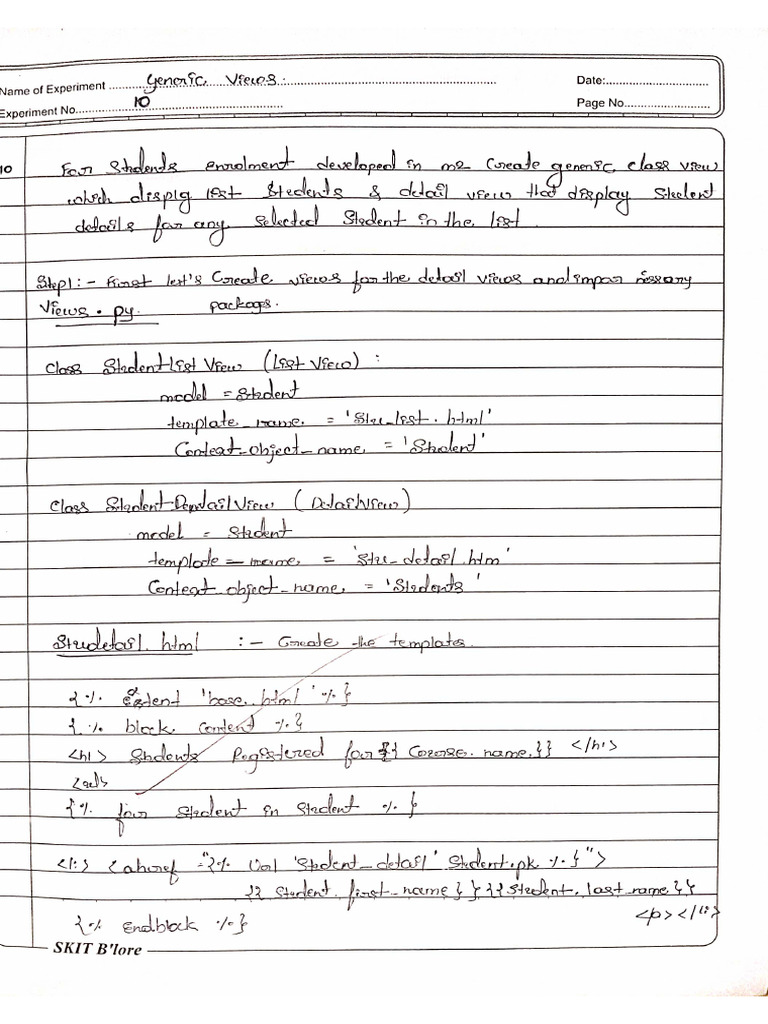 Name of Experiment Generic Views.
Date:
Experiment No. 10
Page No.
10 For Students enrolment developed in m2 Create generic class view
which displg list Students & detail view that display Student
details for any selected Student in the list
Step1 :- First let's Create views for the detail views and impor nessary
Views.py packages.
Class Student-list View (List View) :
model = Student
template_name = 'Stu_list.html'
Context_object_name = 'Student'
Class Student-DeatailView (DetailView)
model = Student
template_name = 'Stu_detail.htm'
Context_object_name = 'Students'
Studetail.html :- Create the templates.
{% extent 'base.html' %}
{% block content %}
<h1> Students Registered for {{ Course.name }} </h1>
<ul>
{% for Student in Student %}
<li> <ahref = "{% Url 'Student_detail' Student.pk %}">
{{ Student.first_name }} {{ Student.last_name }}
<p></li>
{% endblock %}
SKIT B'lore